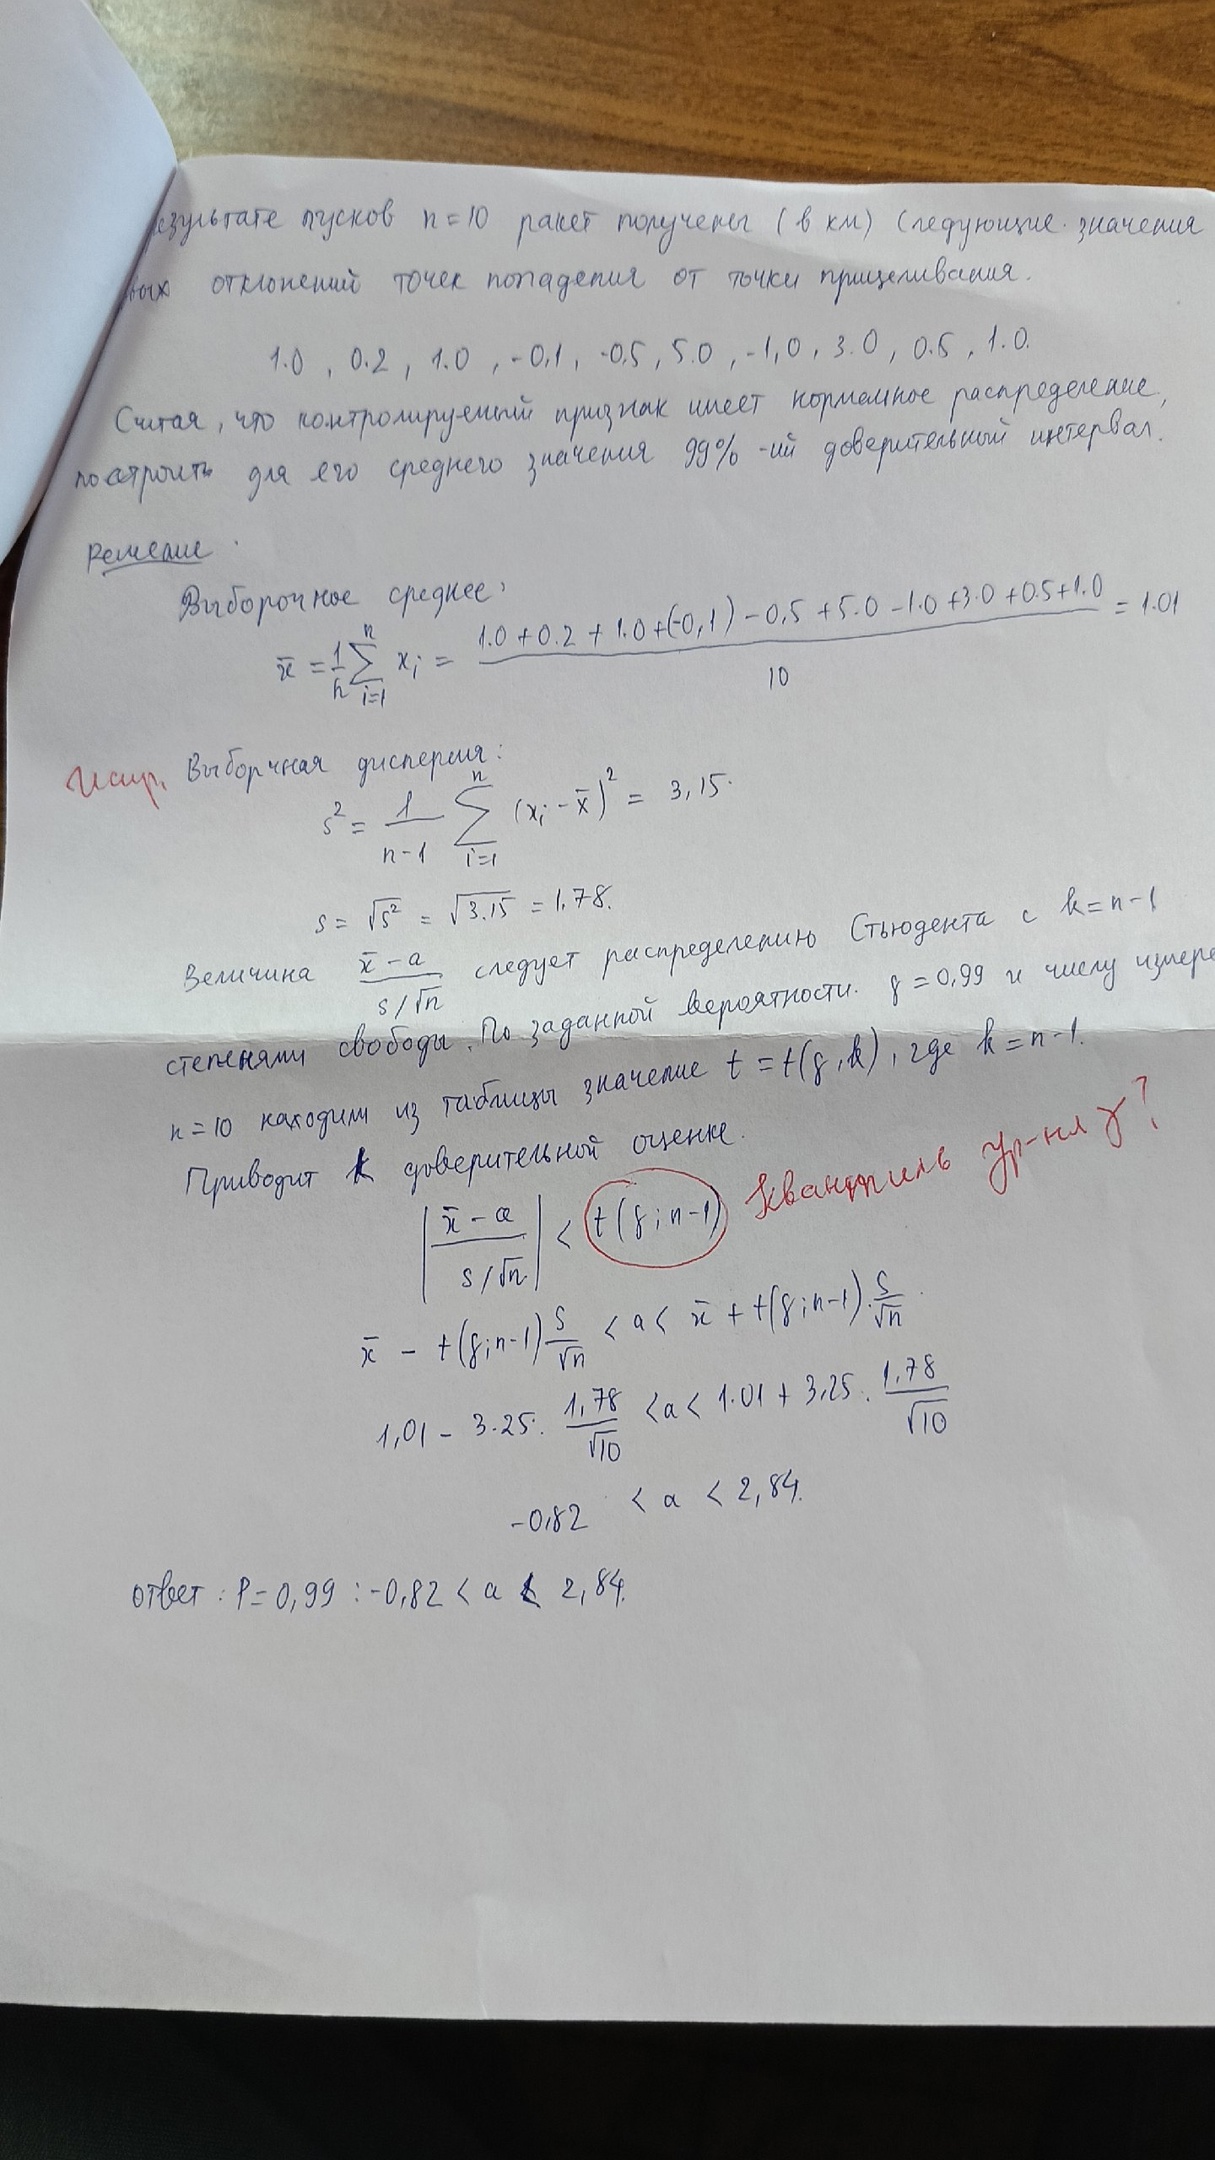 результате пусков n=10 ракет получены (в км) следующие значения
вых отклонений точек попадения от точки прицеливания.
1.0 , 0.2 , 1.0 , -0,1 , -0.5 , 5.0 , -1,0 , 3.0 , 0.5 , 1.0.
Считая, что контролируемый признак имеет нормальное распределение,
построить для его среднего значения 99% -ий доверительный интервал.
Решение.
Выборочное среднее:
x̄ = 1/n ∑_{i=1}^{n} x_i = (1.0 + 0.2 + 1.0 + (-0,1) - 0,5 + 5.0 - 1.0 + 3.0 + 0.5 + 1.0)/10 = 1.01
Испр. Выборчная дисперсия:
s² = 1/(n-1) ∑_{i=1}^{n} (x_i - x̄)² = 3,15.
s = √s² = √3.15 = 1,78.
Величина (x̄ - a)/(s/√n) следует распределению Стьюдента с k = n-1
степенями свободы. По заданной вероятности. γ = 0,99 и числу измере
n = 10 находим из таблицы значение t = t(γ, k), где k = n-1.
Приводит к доверительной оценке.
|(x̄ - a)/(s/√n)| < t(γ; n-1) Квантиль ур-ня γ?
x̄ - t(γ; n-1) s/√n < a < x̄ + t(γ; n-1) · s/√n
1,01 - 3.25 · 1,78/√10 < a < 1.01 + 3,25 · 1,78/√10
-0,82 < a < 2,84.
ответ: P = 0,99 : -0,82 < a < 2,84.